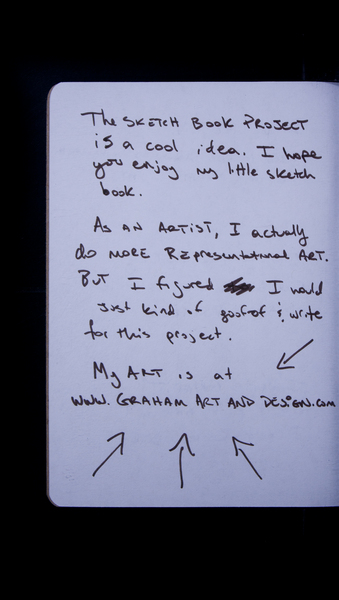 The SKETCH BOOK PROJECT
is a cool idea. I hope
you enjoy my little sketch
book.
As AN ARTIST, I actually
do MORE Representational ART.
BUT I figured I would
just kind of goof of & write
for this project.
My ART is at
WWW. GRAHAM ART AND DESIGN.com